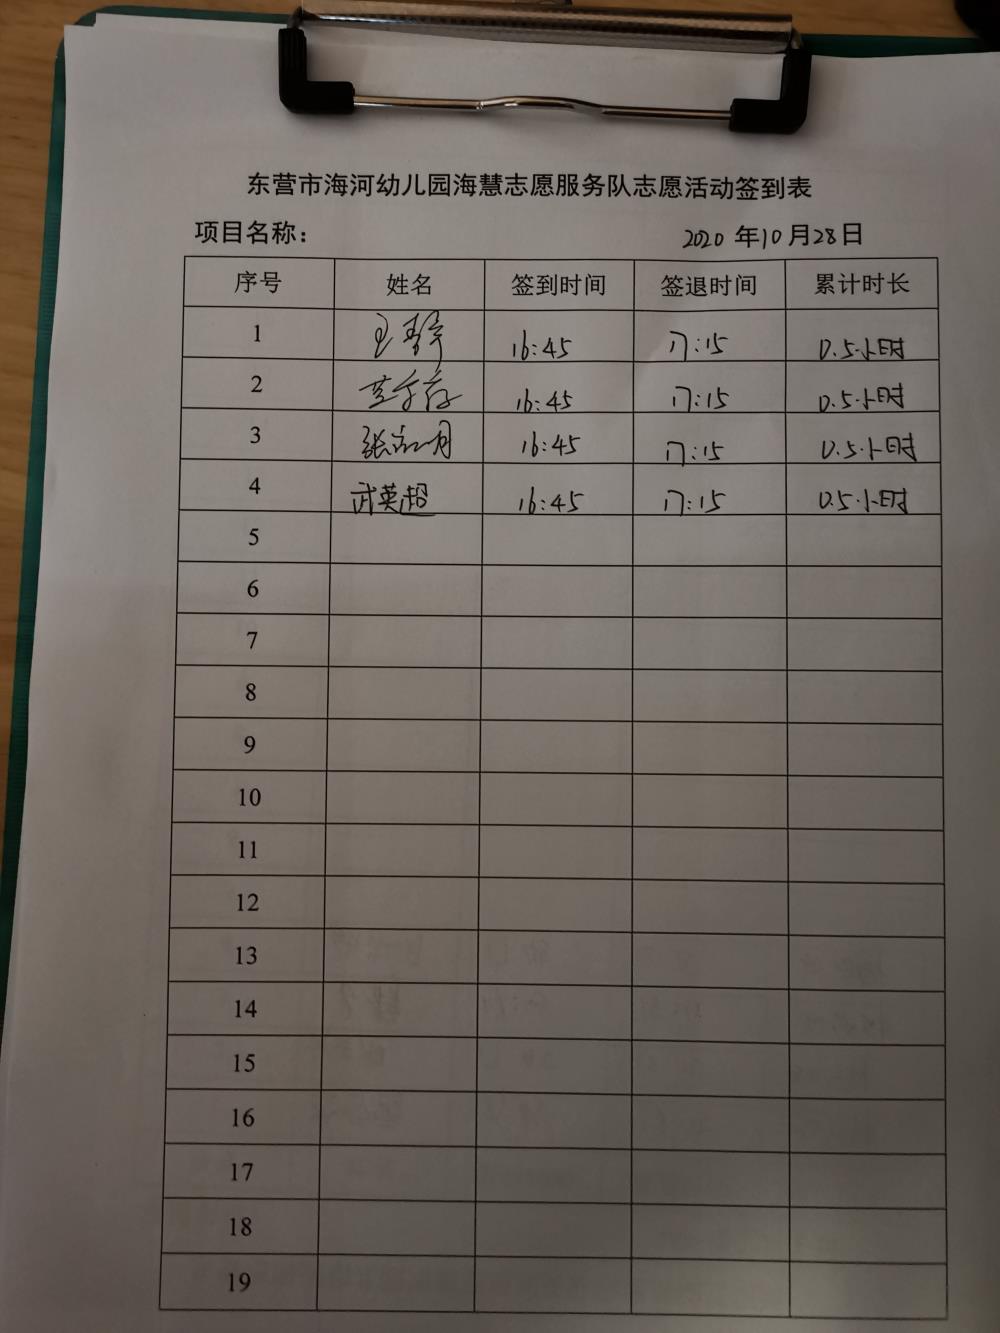 东营市海河幼儿园海慧志愿服务队志愿活动签到表
项目名称： 2020年10月28日
序号 姓名 签到时间 签退时间 累计时长
1 王静 16:45 17:15 0.5小时
2 16:45 17:15 0.5小时
3 张 16:45 17:15 0.5小时
4 武英超 16:45 17:15 0.5小时
5
6
7
8
9
10
11
12
13
14
15
16
17
18
19